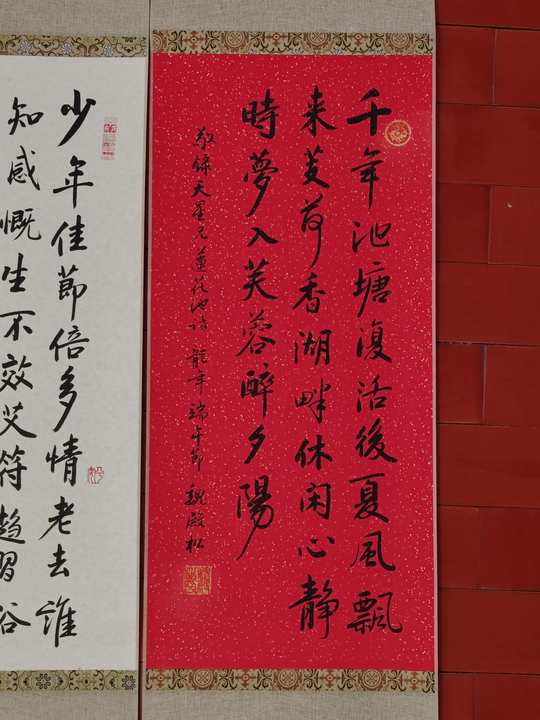 千年池塘復活後夏風飄
来芰荷香湖畔休闲心靜
時夢入芙蓉醉夕陽
敬錄天星兄蓮花池诗 龍年 端午節 魏殿松
少年佳節倍多情老去誰
知感慨生不效艾符趋習俗